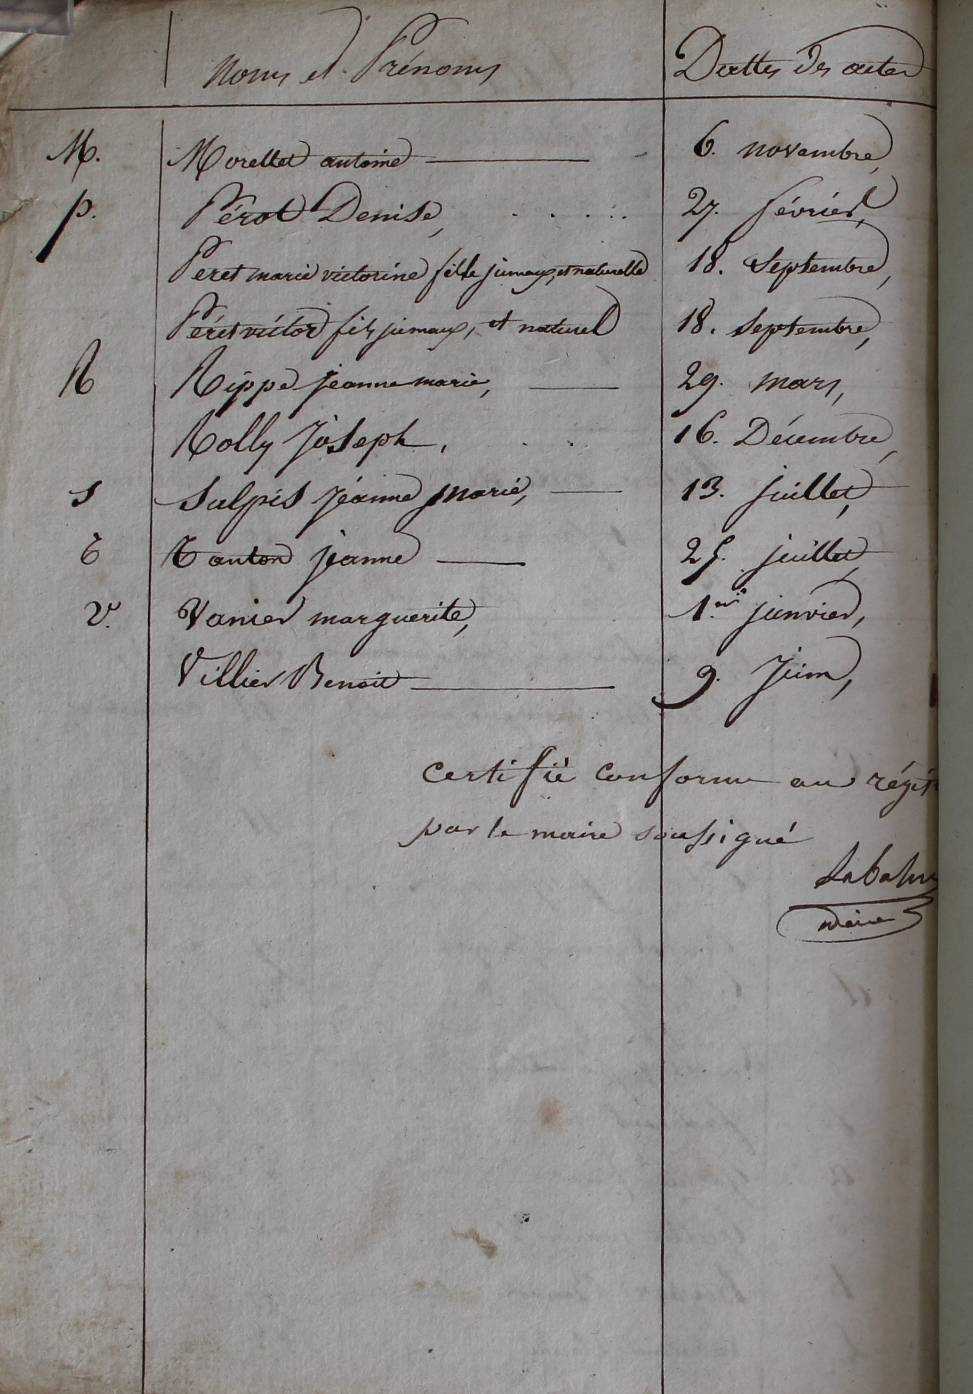 noms et Prénoms Dattes des actes
M. Morellet antoine 6. novembre,
p. Pérot Denise, 27. février,
Peret marie victorine fille jumaux, et naturelle 18. Septembre,
Péret victor fils jumaux, et naturel 18. Septembre,
R Rippe jeanne marie, 29. mars,
Rolly Joseph, 16. Décembre,
S Sulpis Jéanne Marie, 13. juillet,
T Tanton jeanne 25. juillet,
V. Vanier marguerite, 1.er janvier,
Villier Benoit 9. Juin,
certifié conforme au régist
par le maire soussigné
maire